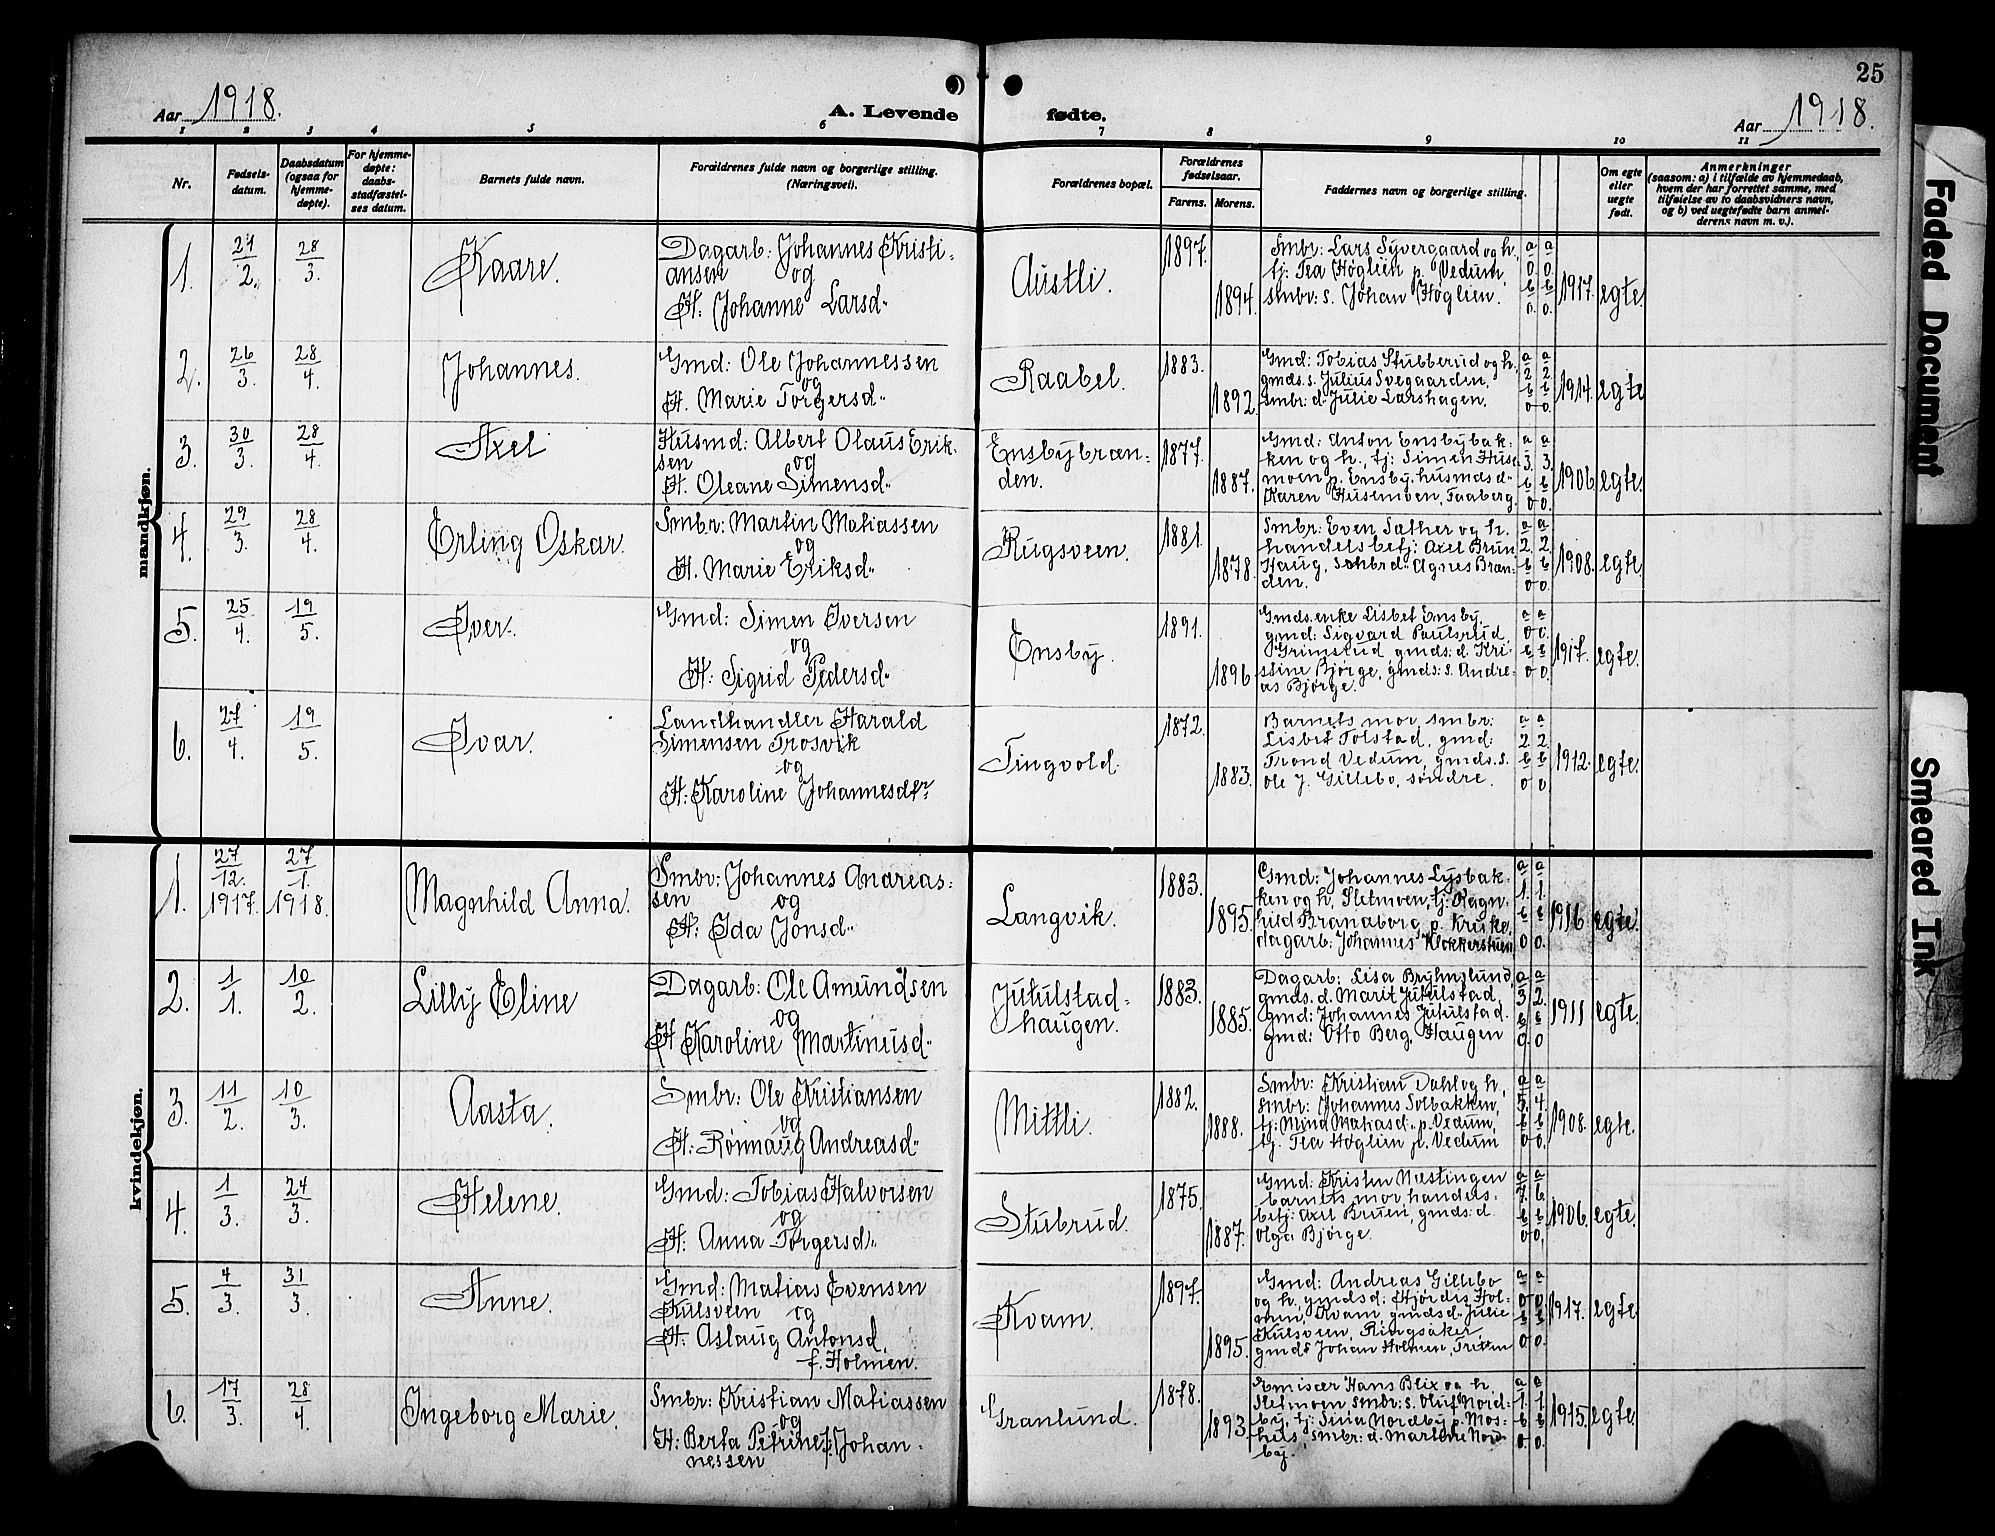 25
Aar 1918.
A. Levende fødte.
Aar 1918.
1 2 3 4 5 6 7 8 9 10 11
Nr.
Fødsels-
datum.
Daabsdatum
(ogsaa for
hjemme-
døpte).
For hjemme-
døpte:
daabs-
stadfæstel-
ses datum.
Barnets fulde navn.
Forældrenes fulde navn og borgerlige stilling.
(Næringsvei).
Forældrenes bopæl.
Forældrenes
fødselsaar.
Farens. Morens.
Faddernes navn og borgerlige stilling.
Om egte
eller
uegte
født.
Anmerkninger
(saasom: a) i tilfælde av hjemmedaab,
hvem der har forrettet samme, med
tilføielse av to daabsvidners navn,
og b) ved uegtefødte barn anmel-
derens navn m. v.).
mandkjøn.
1.
27/2.
28/3.
Kaare.
Dagarb: Johannes Kristi-
ansen og
H. Johanne Larsd.
Austli.
1897.
1894.
Smbr: Lars Syvergaard og h.,
tj: Tea Høglien p. Vedum,
smbr: s. Johan Høglien.
a a
0. 0.
b b
0. 0.
1917.
egte.
2.
26/3.
28/4.
Johannes.
Gmd: Ole Johannessen
og
H. Marie Torgersd.
Raabel.
1883.
1892.
Gmd: Tobias Stubberud og h.,
gmds. s. Julius Svegaarden,
smbr: d. Julie Larshagen.
a a
2. 2.
b b
0 0.
1914.
egte
3.
30/3.
28/4.
Axel
Husmd: Albert Olaus Erik-
sen og
H. Oleane Simensd.
Ensbybræn-
den.
1877.
1887.
Gmd: Anton Ensbybak-
ken og h., tj: Simen Huse-
moen p. Ensby, husmds d.
Karen Husemoen, Faaberg.
a a
3. 3.
b b
0 0.
1906.
egte.
4.
29/3.
28/4.
Erling Oskar.
Smbr: Martin Matiassen
og
H. Marie Eriksd.
Rugsveen.
1881.
1878.
Smbr: Even Sæther og h.
handelsbetj: Axel Brun,
Haug, smbr d. Agnes Bræn-
den.
a a
2. 2.
b b
0 0.
1908.
egte.
5.
25/4.
19/5.
Iver.
Gmd: Simen Iversen
og
H: Sigrid Pedersd.
Ensby.
1891.
1896.
Gmds. enke Lisbet Ensby,
gmd: Sigvard Paulsrud,
Grimstud gmds: d Kri-
stine Bjørge, gmds: s. Andre-
as Bjørge.
a a
0 0.
b b
0 0.
1917.
egte.
6.
27/4.
19/5.
Ivar.
Landhandler Harald
Simensen Trosvik
og
H: Karoline Johannesdtr
Tingvold.
1872.
1883.
Barnets mor, smbr:
Lisbet Tolstad, gmd:
Trond Vedum, gmds. s.
Ole J. Gillebo, søndre.
a a
2. 2.
b b
0 0
1912.
egte.
kvindekjøn.
1.
27/12. 1917.
27/1. 1918.
Magnhild Anna.
Smbr: Johannes Andreas-
sen og
H: Ida Jonsd.
Langvik.
1883.
1895.
Gmd: Johannes Lysbak-
ken og h. Sletmoen, tj: Ragn-
hild Brændborg p. Kruke,
dagarb: Johannes Klokkerstuen
a a
1. 1.
b b
0 0.
1916.
egte.
2.
1/1.
10/2.
Lilly Eline
Dagarb: Ole Amundsen
og
H. Karoline Martinusd.
Jutulstad-
haugen.
1883.
1885.
Dagarb: Lisa Bryhnslund,
gmds. d. Marit Jutulstad,
gmd: Johannes Jutulstad.
gmd: Otto Berg, Haugen
a a
3 2.
b b
0. 0.
1911
egte.
3.
11/2.
10/3.
Aasta.
Smbr: Ole Kristiansen
og
H: Rønnaug Andreasd.
Mittli.
1882.
1888.
Smbr: Kristian Dahl og h.,
smbr: Johannes Solbakken,
tj: Mina Matiasd. p. Vedum,
tj. Tea Høglien p. Vedum
a a
5. 4.
b b
0 0.
1908.
egte.
4.
1/3.
24/3.
Helene.
Gmd: Tobias Halvorsen
og
H: Anna Torgersd.
Stubrud.
1875.
1887.
Gmd: Kristen Mæstingen
barnets mor, handels-
betj: Axel Bruen, gmds: d.
Olga Bjørge.
a a
7. 6.
b b
0 0.
1906.
egte.
5.
4/3.
31/3.
Anne.
Gmd: Matias Evensen
Kulsveen og
H. Aslaug Antonsd.
f. Holmen.
Kvam.
1897.
1895.
Gmd: Andreas Gillebo
og h., gmds d: Hjørdis Hol-
men, Kvam, gmds d. Julie
Kulsveen, Ringsaker,
gmds Johan Holmen, Tretten
a a
0 0.
b b
0 0.
1917.
egte
6.
17/3.
28/4.
Ingeborg Marie.
Smbr: Kristian Matiassen
og
H: Berta Petrine f. Johan-
nessen
Granlund.
1878.
1893.
Emissær Hans Blix og h.
Sletmoen smbr: s. Oluf Nord-
by, tj: Sina Nordby p. Mos-
hus, smbr: d. Marlene Nord-
by.
a a
1. 1.
b b
0. 0.
1915.
egte.
Faded Document
Smeared Ink